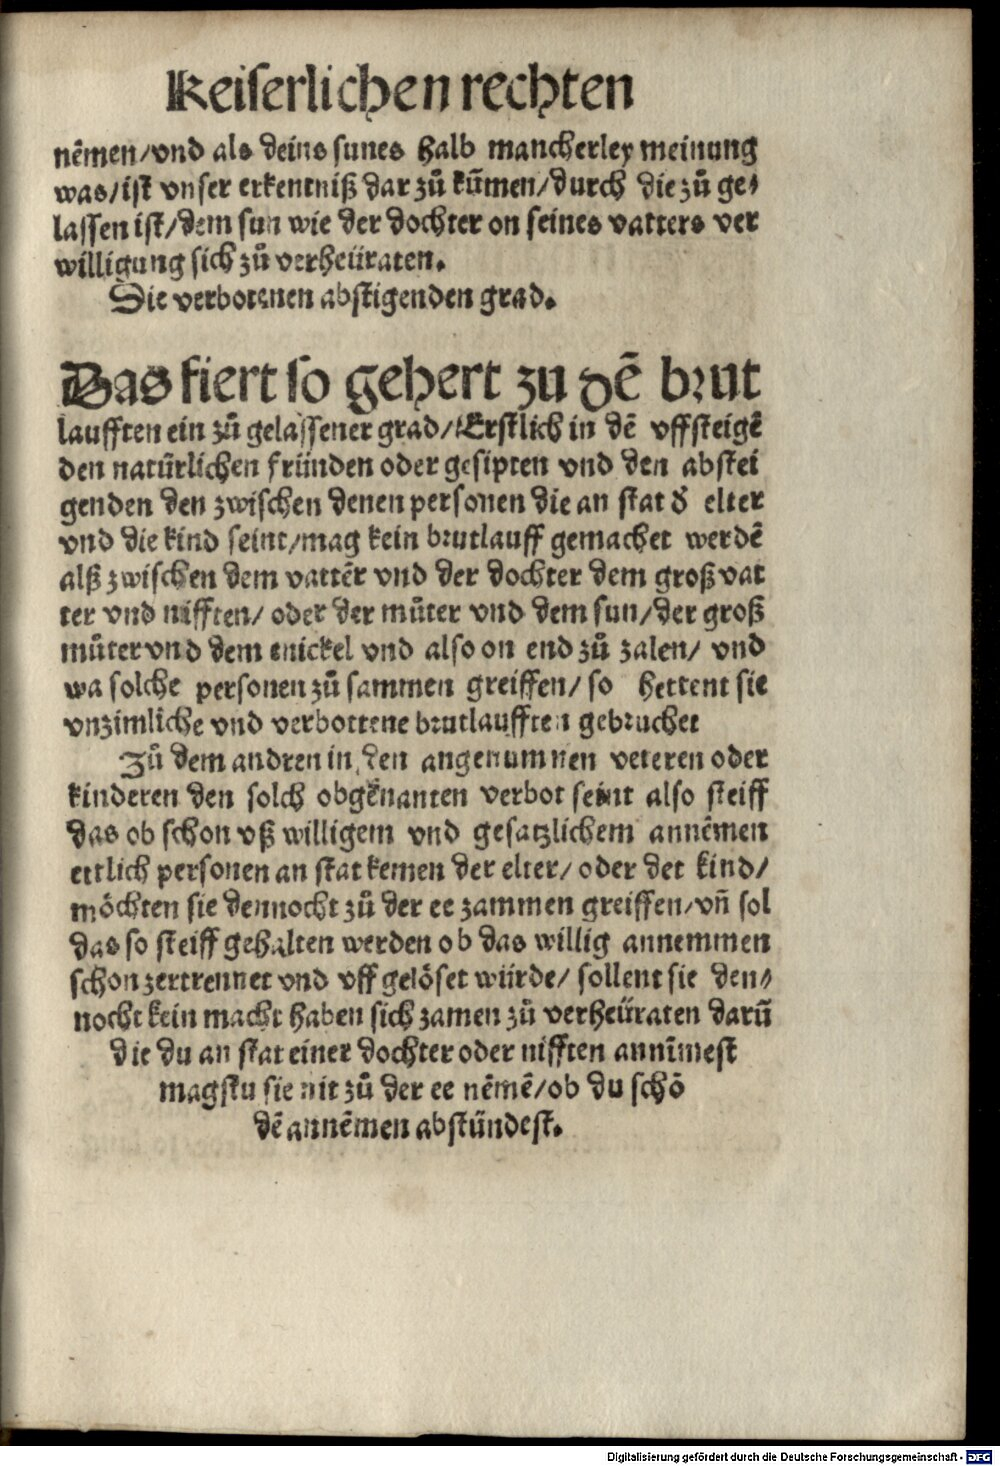 Keiserlichen rechten
nēmen/vnd als deins sunes halb mancherley meinung
was/ist vnser erkentniß dar zů kūmen/durch die zů ge⸗
lassen ist/dem sun wie der dochter on seines vatters ver
willigung sich zů verheüraten.
Die verbotenen abstigenden grad.
Das fiert so gehert zu dē brut
laufften ein zů gelassener grad/Erstlich in dē vffsteigē
den natürlichen fründen oder gesipten vnd den abstei
genden den zwischen denen personen die an stat ď elter
vnd die kind seint/mag kein brutlauff gemachet werdē
alß zwischen dem vattēr vnd der dochter dem groß vat
ter vnd nifften/ oder der můter vnd dem sun/der groß
můter vnd dem enickel vnd also on end zů zalen/ vnd
wa solche personen zů sammen greiffen/ so hettent sie
vnzimliche vnd verbottene brutlaufften gebruchet
Zů dem andren in den angenumnen veteren oder
kinderen den solch obgēnanten verbot seint also steiff
das ob schon vß willigem vnd gesatzlichem annēmen
ettlich personen an stat kemen der elter/ oder det kind/
möchten sie dennocht zů der ee zammen greiffen/vñ sol
das so steiff gehalten werden ob das willig annemmen
schon zertrennet vnd vff gelöset würde/ sollent sie den⸗
nocht kein macht haben sich zamen zů verheüraten darū
die du an stat einer dochter oder nifften annīmest
magstu sie nit zů der ee nēmē/ob du schō
dē annēmen abstündest.
Digitalisierung gefördert durch die Deutsche Forschungsgemeinschaft - DFG